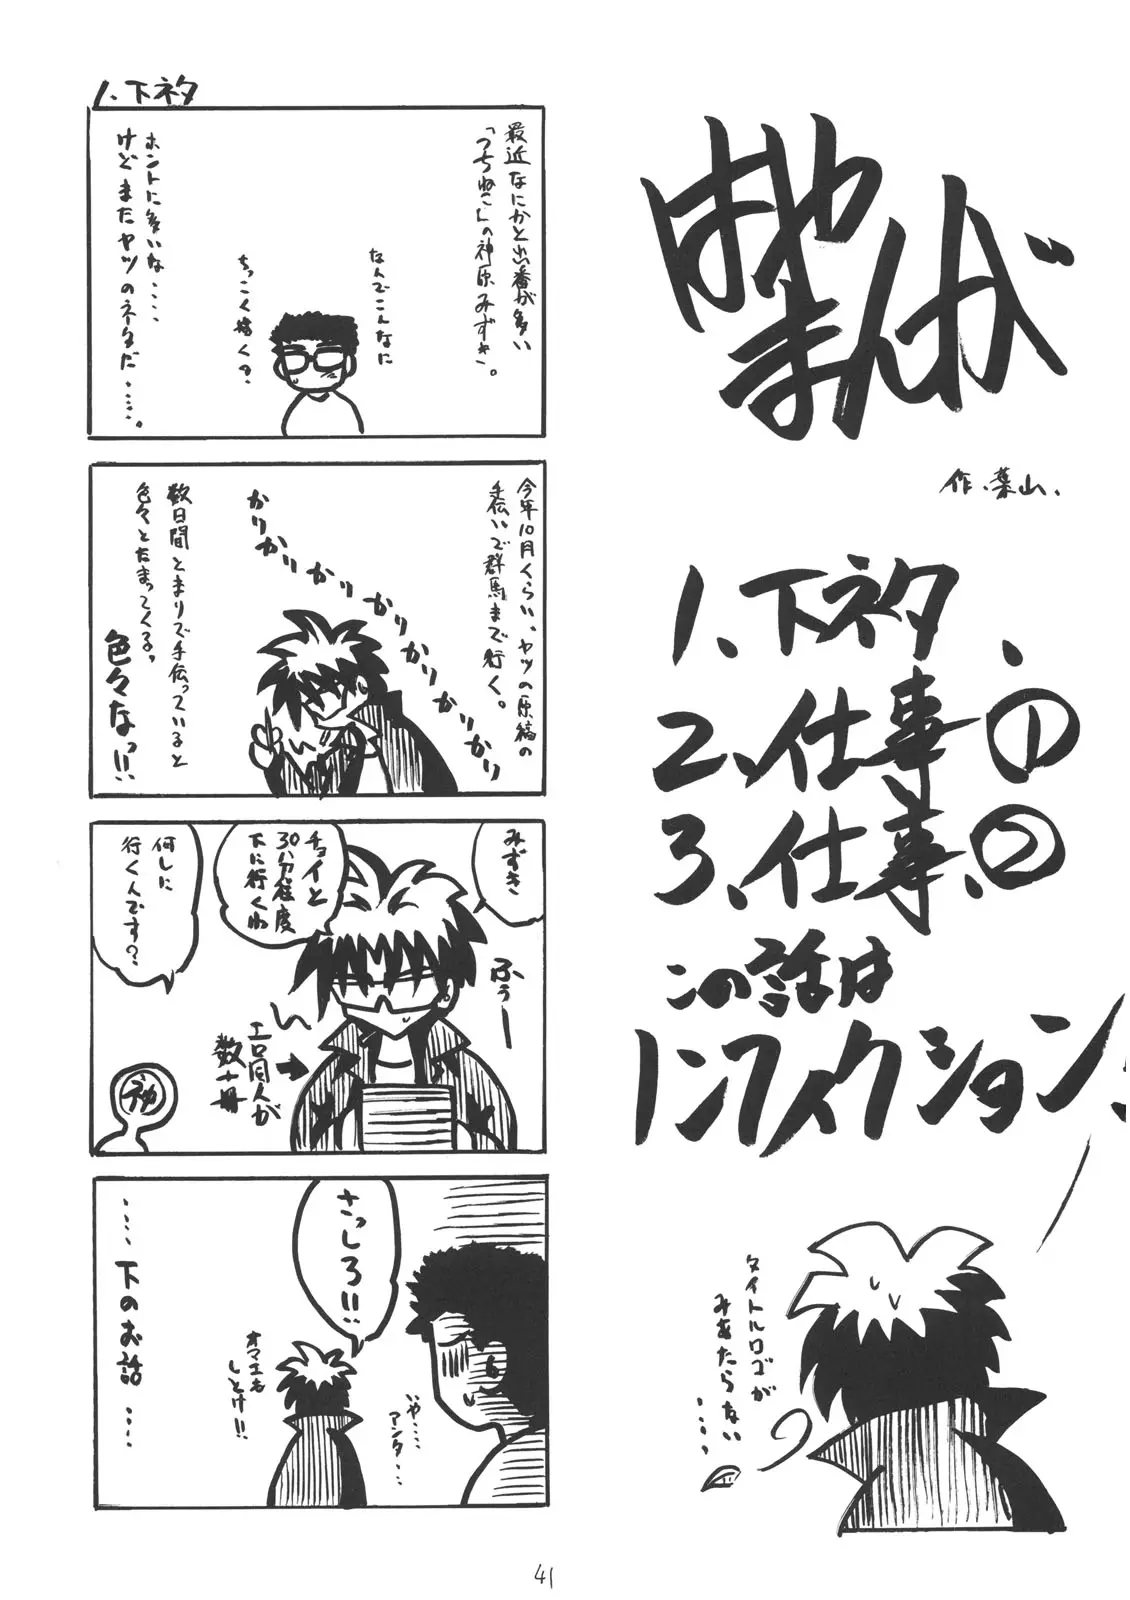 はや
まんが
作、葉山、
1、下ネタ、
2、仕事①
3、仕事、②
この話は
ノンフィクション
タイトルロゴが
みあたらない
・・・・
1、下ネタ
最近なにかと出番が多い
「つちねこさんの神原みずき」。
なんでこんなに
ちっこく描く?
ホントに多いな・・・・
けどまたヤツのネタだ・・・・・。
今年10月くらい、ヤツの原稿の
手伝いで群馬まで行く。
かりかりかりかりかりかりかりかり
数日間とまりで手伝っていると
色々とたまってくるっ
色々なっ!!
みずき
チョイと
30分程度
下に行くわ
何しに
行くんです?
ふぅー
エロ同人が
数十冊
さっしろ!!
オマエも
しとけ!!
いや・・・・
アンタ・・・
・・・・下のお話・・・・
41